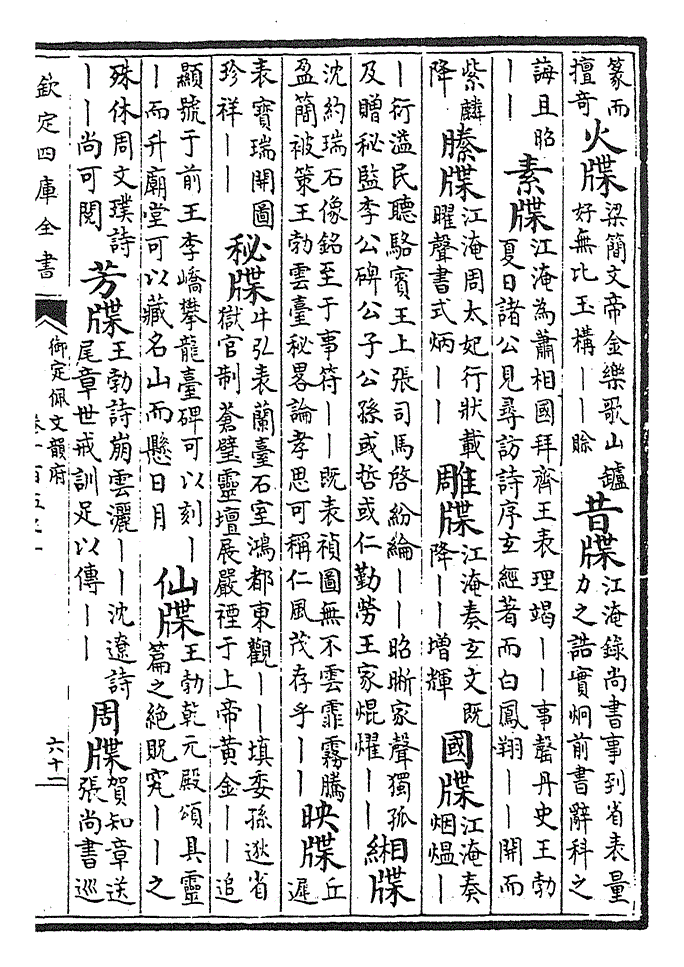 篆而
擅奇
火牒
梁簡文帝金樂歌山鑪
好無比玉構――賒
昔牒
江淹錄尚書事到省表量
力之誥實炯前書辭科之
誨且昭
――
素牒
江淹為蕭相國拜齊王表理竭――事罄丹史王勃
夏日諸公見尋訪詩序玄經著而白鳳翔――開而
紫麟
降
縢牒
江淹周太妃行狀載
曜聲書式炳――
雕牒
江淹奏玄文既
降――增輝
國牒
江淹奏
烟熅―
―衍溢民聽駱賓王上張司馬啓紛綸――昭晰家聲獨孤
及贈秘監李公碑公子公孫或哲或仁勤勞王家焜燿――
緗牒
沈約瑞石像銘至于事符――既表禎圖無不雲霏霧騰
盈簡被策王勃雲臺秘畧論孝思可稱仁風茂存乎――
映牒
丘
遲
表寶瑞開圖
珍祥――
秘牒
牛弘表蘭臺石室鴻都東觀――填委孫逖省
獄官制蒼璧靈壇展嚴禋于上帝黄金――追
顯號于前王李嶠攀龍臺碑可以刻―
―而升廟堂可以藏名山而懸日月
仙牒
王勃乾元殿頌具靈
篇之絶貺究――之
殊休周文璞詩
――尚可閱
芳牒
王勃詩崩雲灑――沈遼詩
尾章世戒訓足以傳――
周牒
賀知章送
張尚書巡
欽定四庫全書
御定佩文韻府
六十二